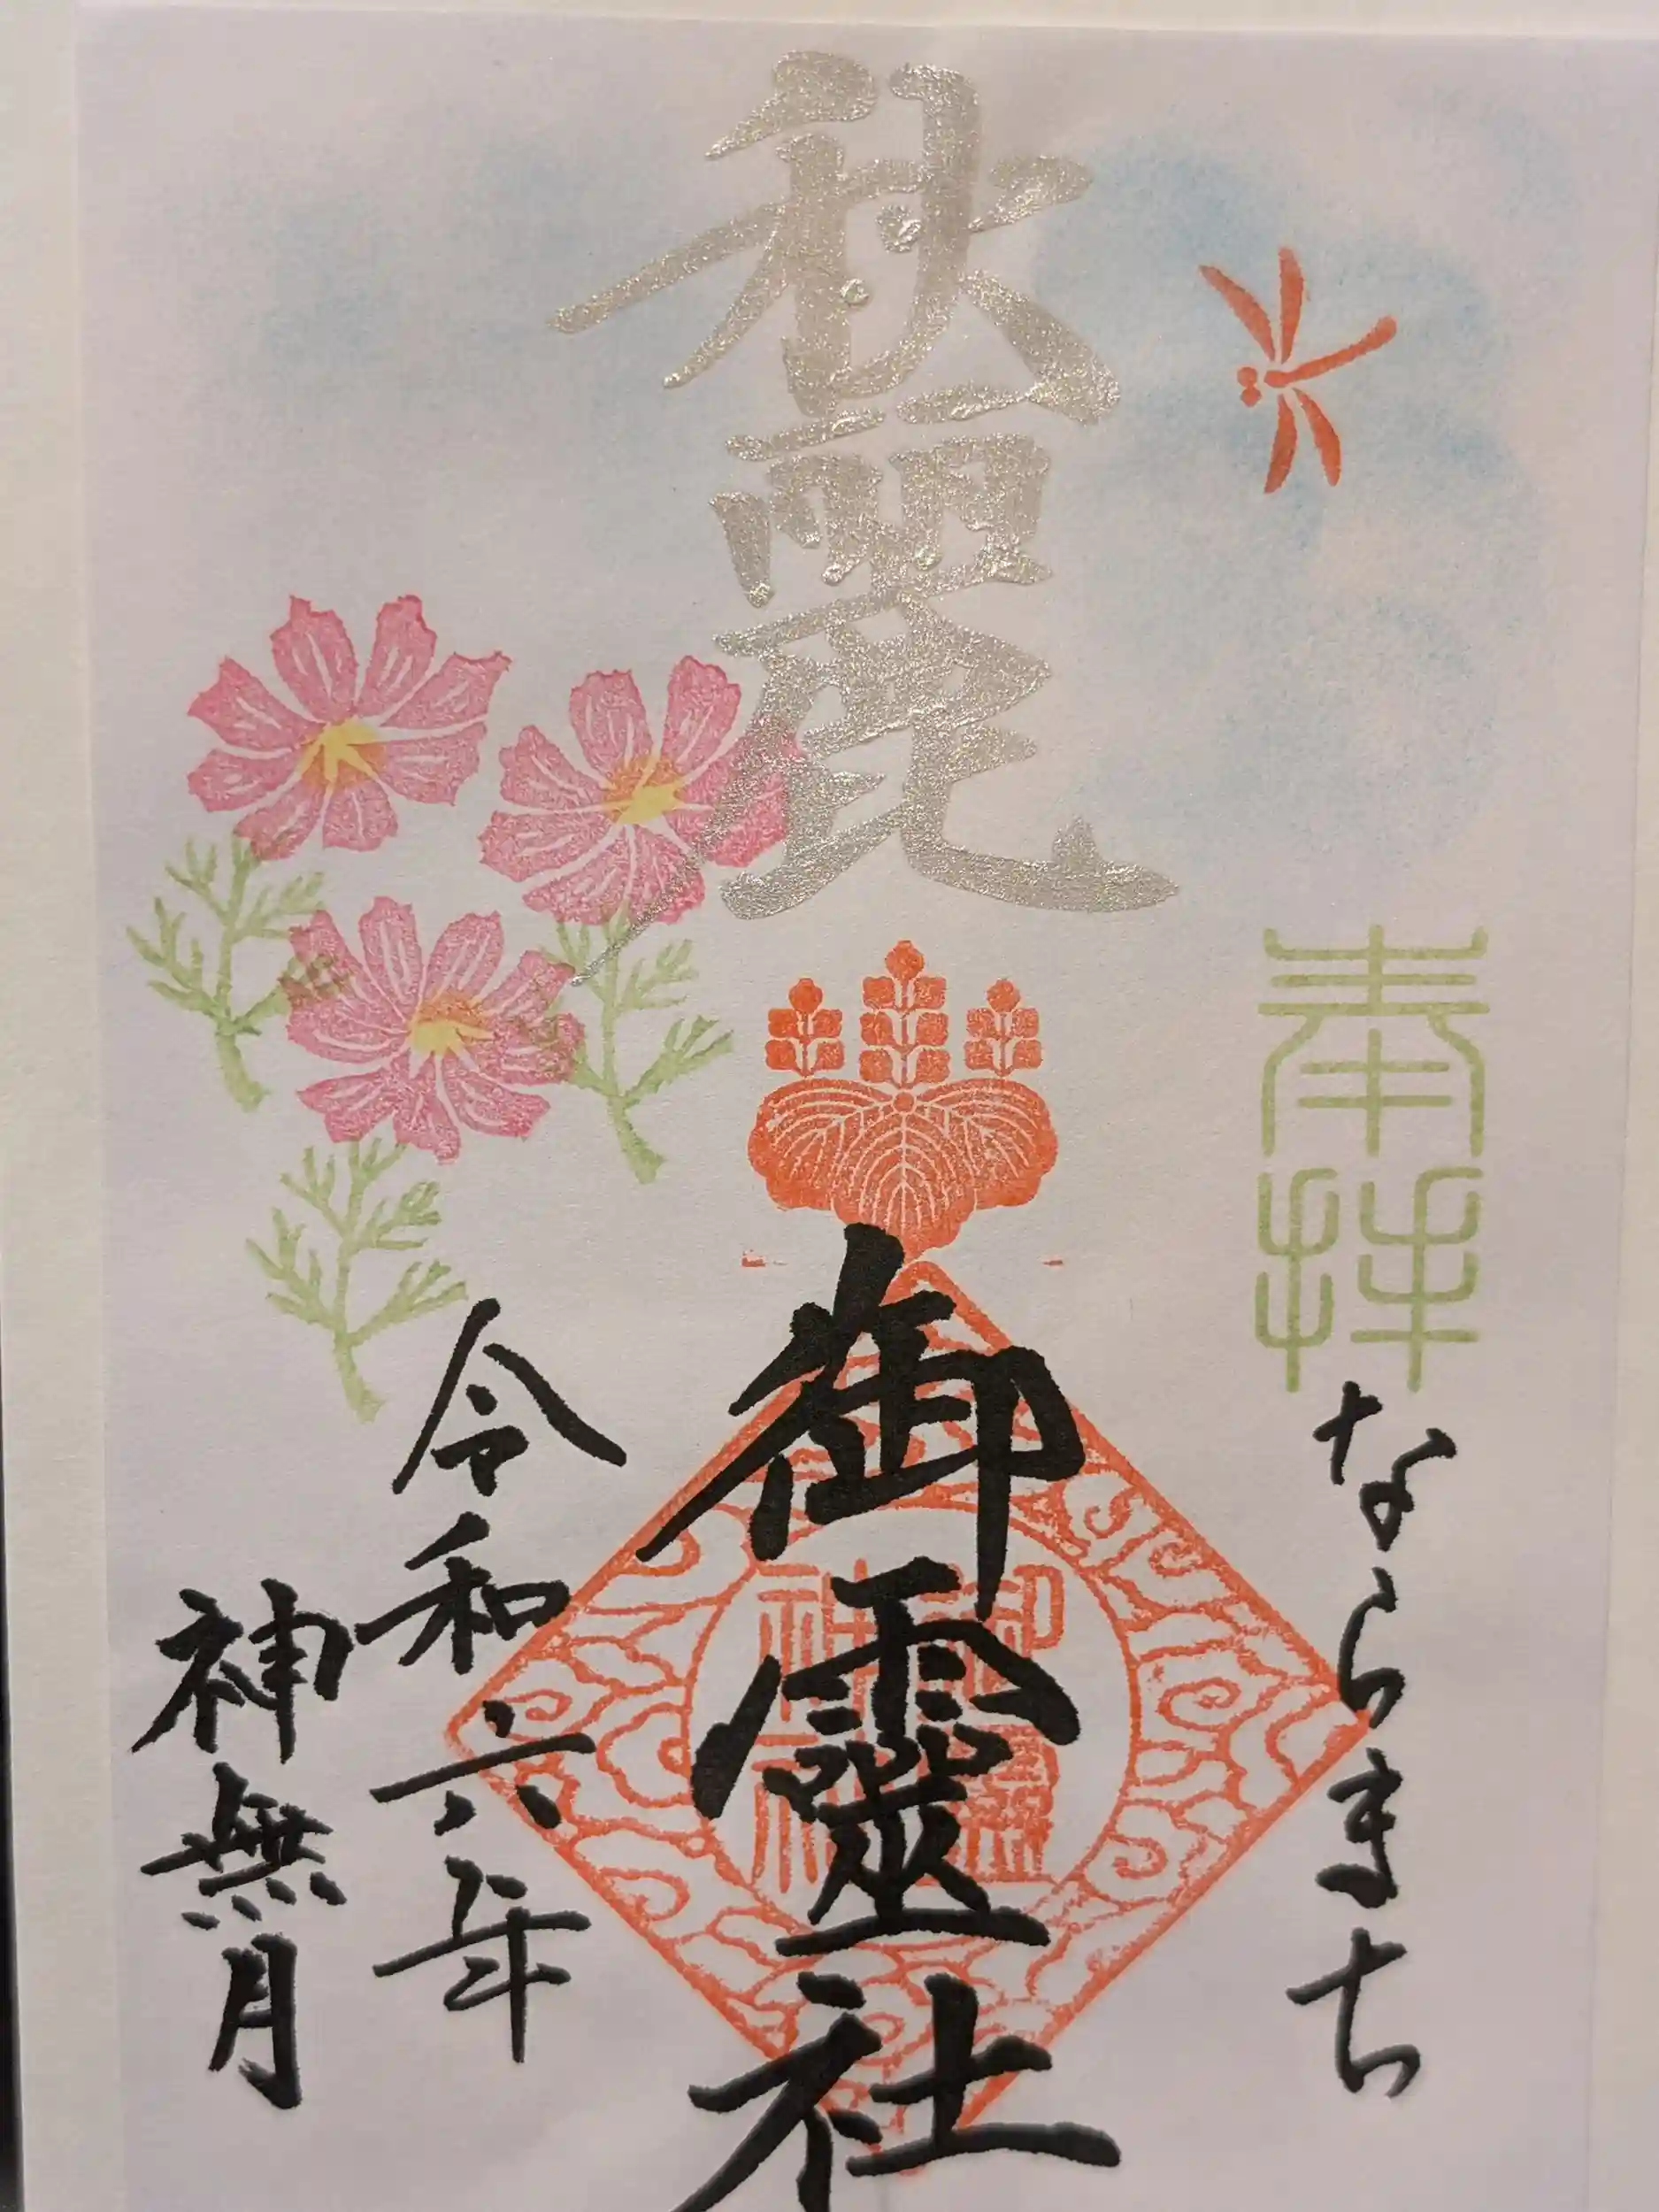 奉拝
ならまち
秋麗
御靈社
御靈神社
令和六年
神無月